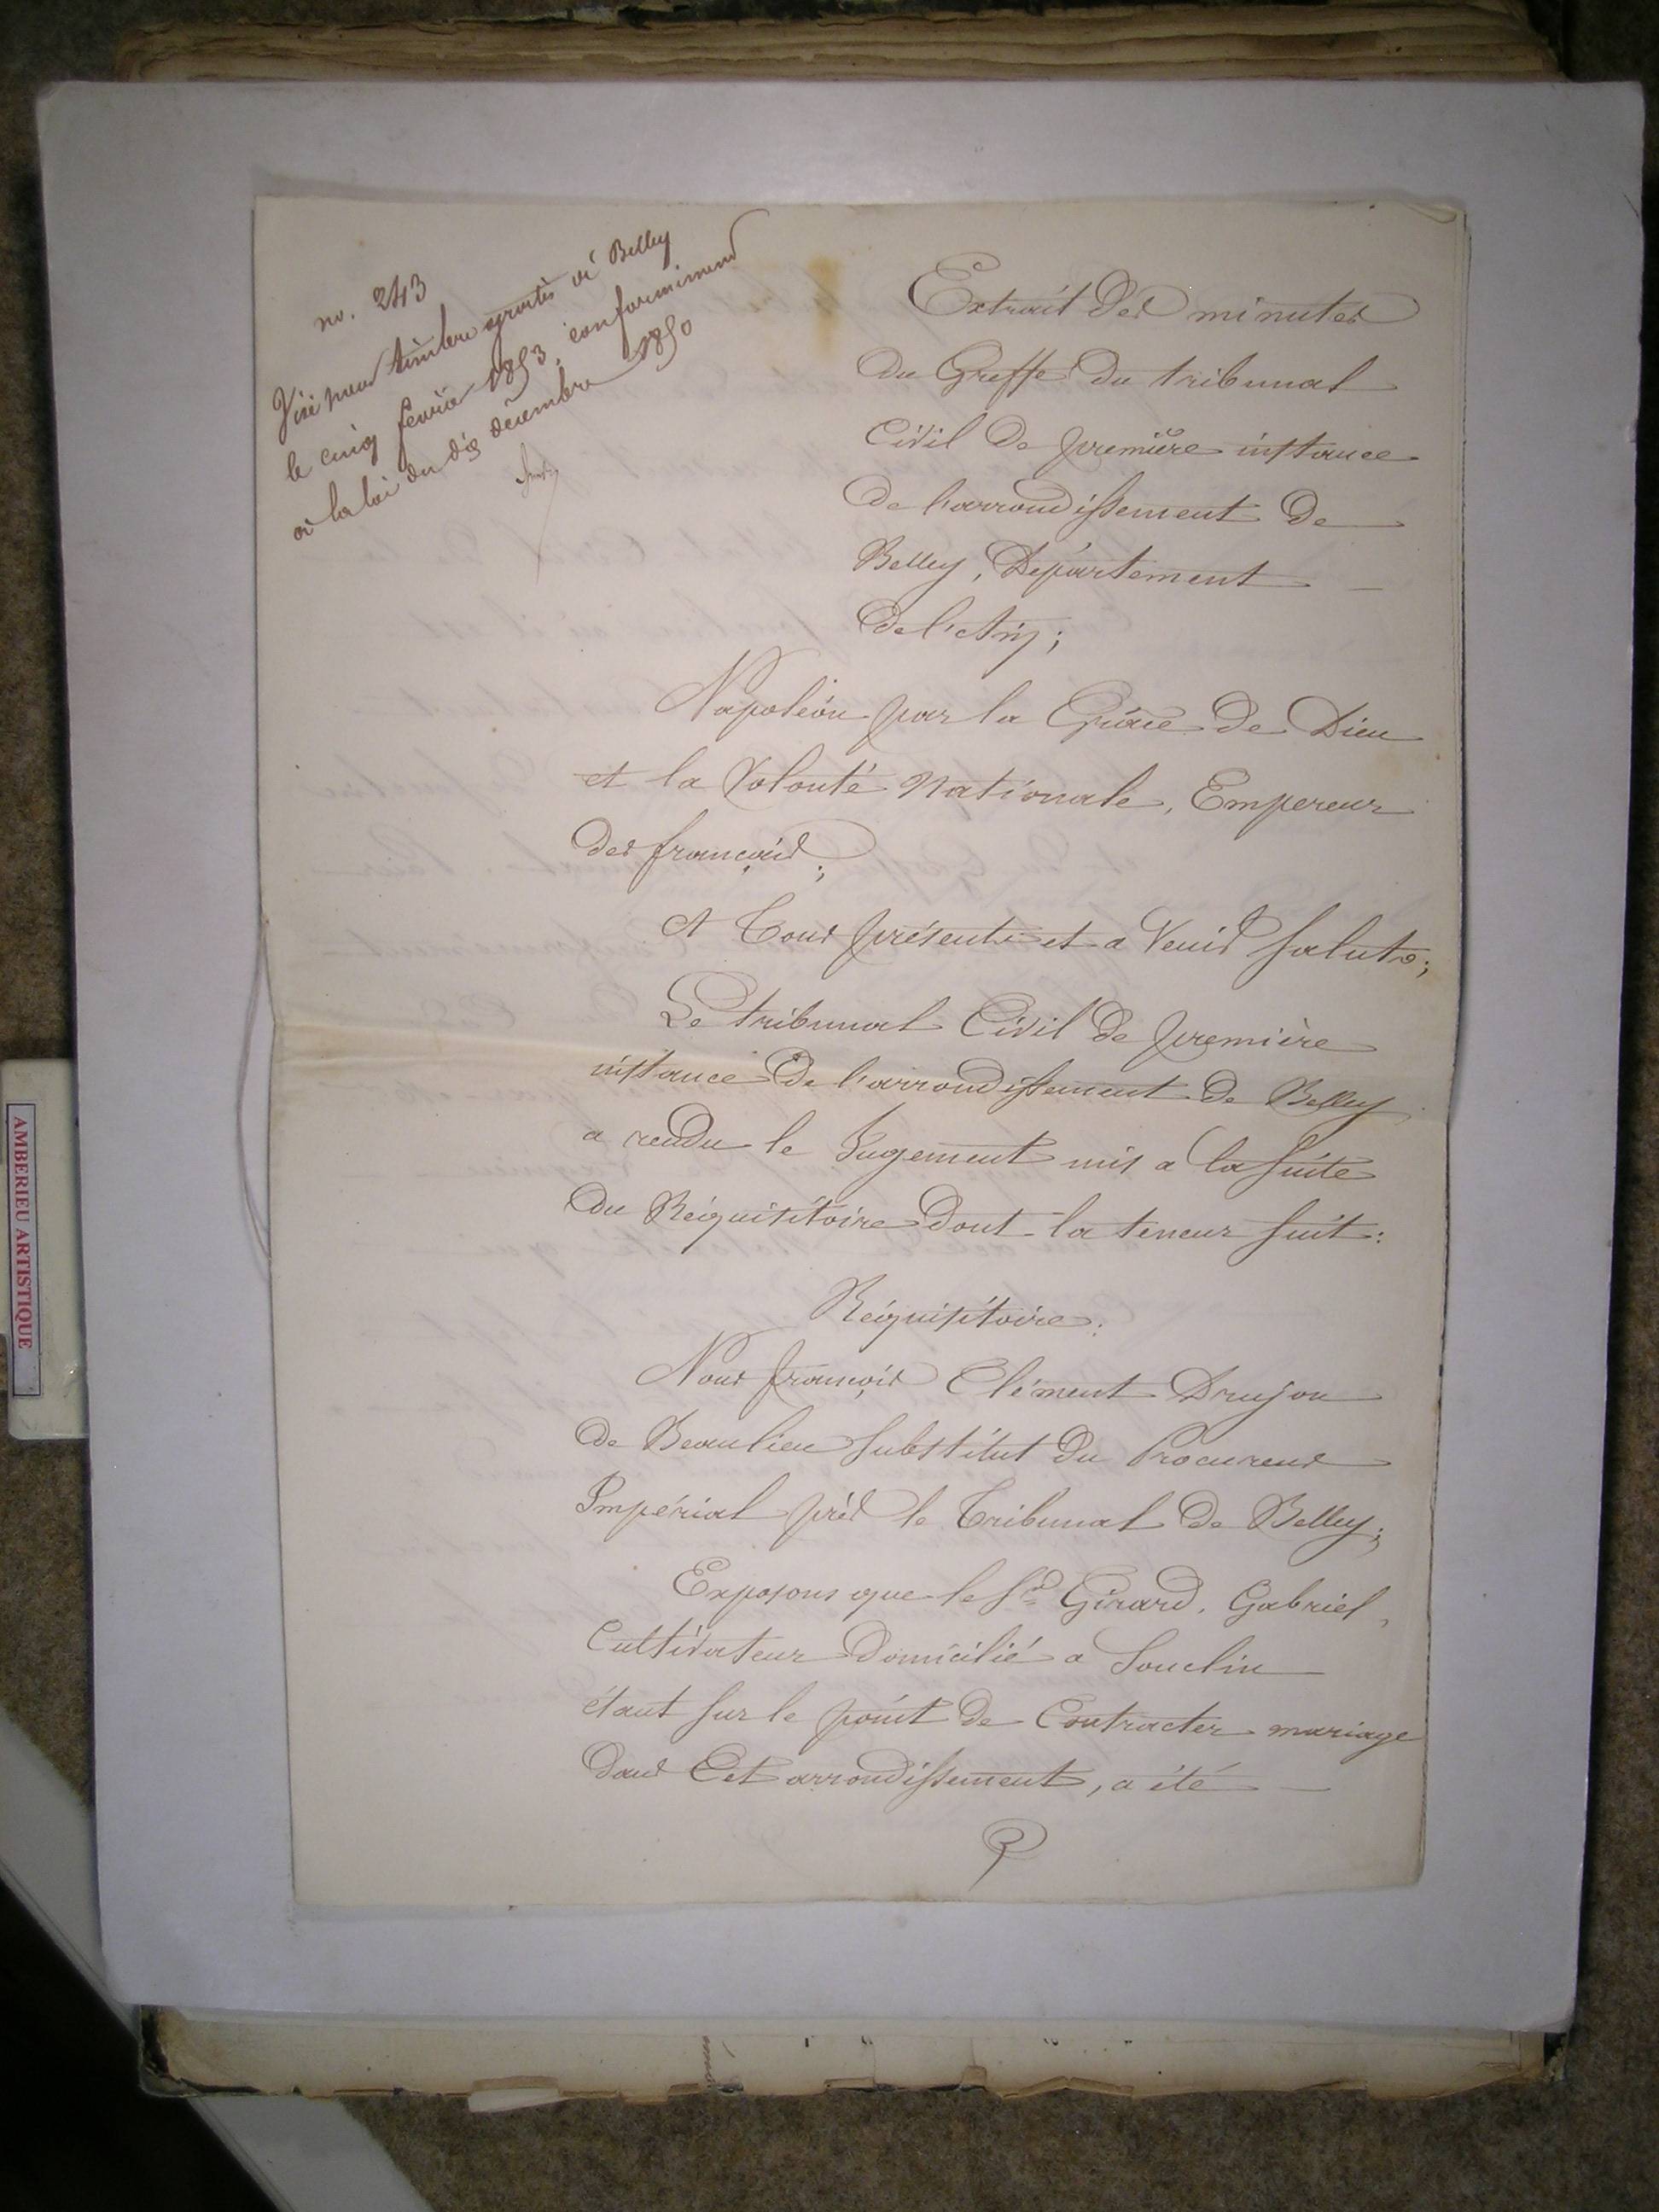 no. 243
Visé pour timbre gratis à Belley
le cinq février 1853, conformément
à la loi du dix décembre 1850
Extrait des minutes
du Greffe du tribunal
Civil de première instance
de l'arrondissement de
Belley, Département
de l'Ain;
Napoléon par la Grâce de Dieu
et la Volonté Nationale, Empereur
des français;
A Tous présents et a Venir Salut;
Le tribunal Civil de première
instance de l'arrondissement de Belley
a rendu le Jugement mis a la suite
du Réquisitoire dont la teneur suit:
Réquisitoire:
Nous françois Clément Drujon
de Beaulieu Substitut du Procureur
Impérial près le Tribunal de Belley;
Exposons que le Sr Girard, Gabriel,
Cultivateur domicilié a Souclin
étant sur le point de Contracter mariage
dans Cet arrondissement, a été
AMBERIEU ARTISTIQUE